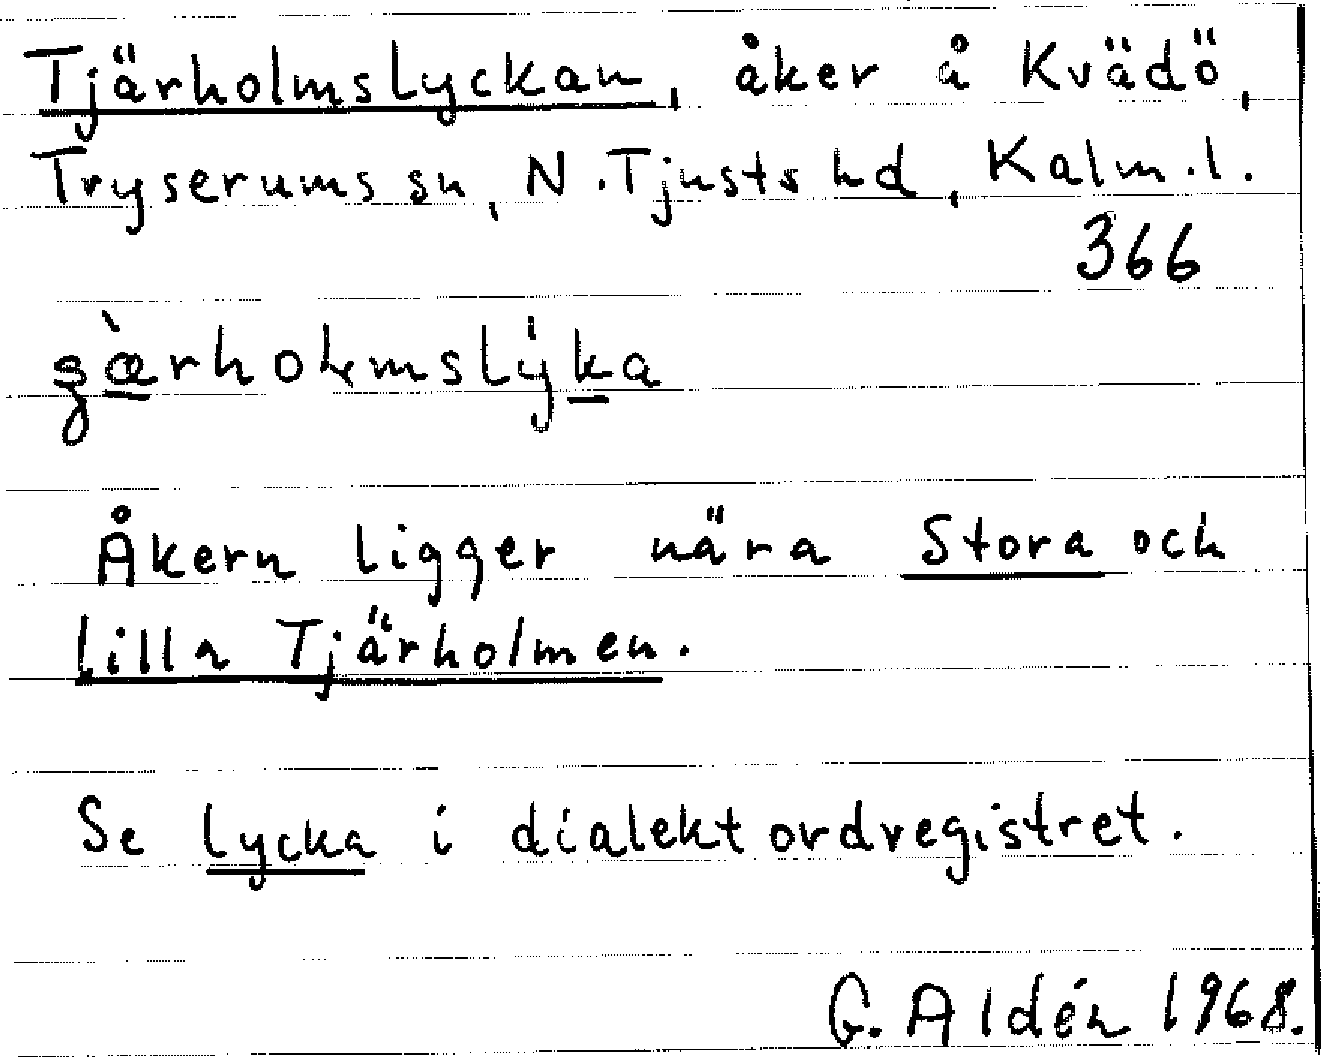 Tjärholmslyckan, åker å Kvädö,
Tryserums sn, N. Tjusts hd, Kalm. l.
366
Åkern ligger nära Stora och
lilla Tjärholmen.
Se lycka i dialektordregistret.
G. Aldén 1968.